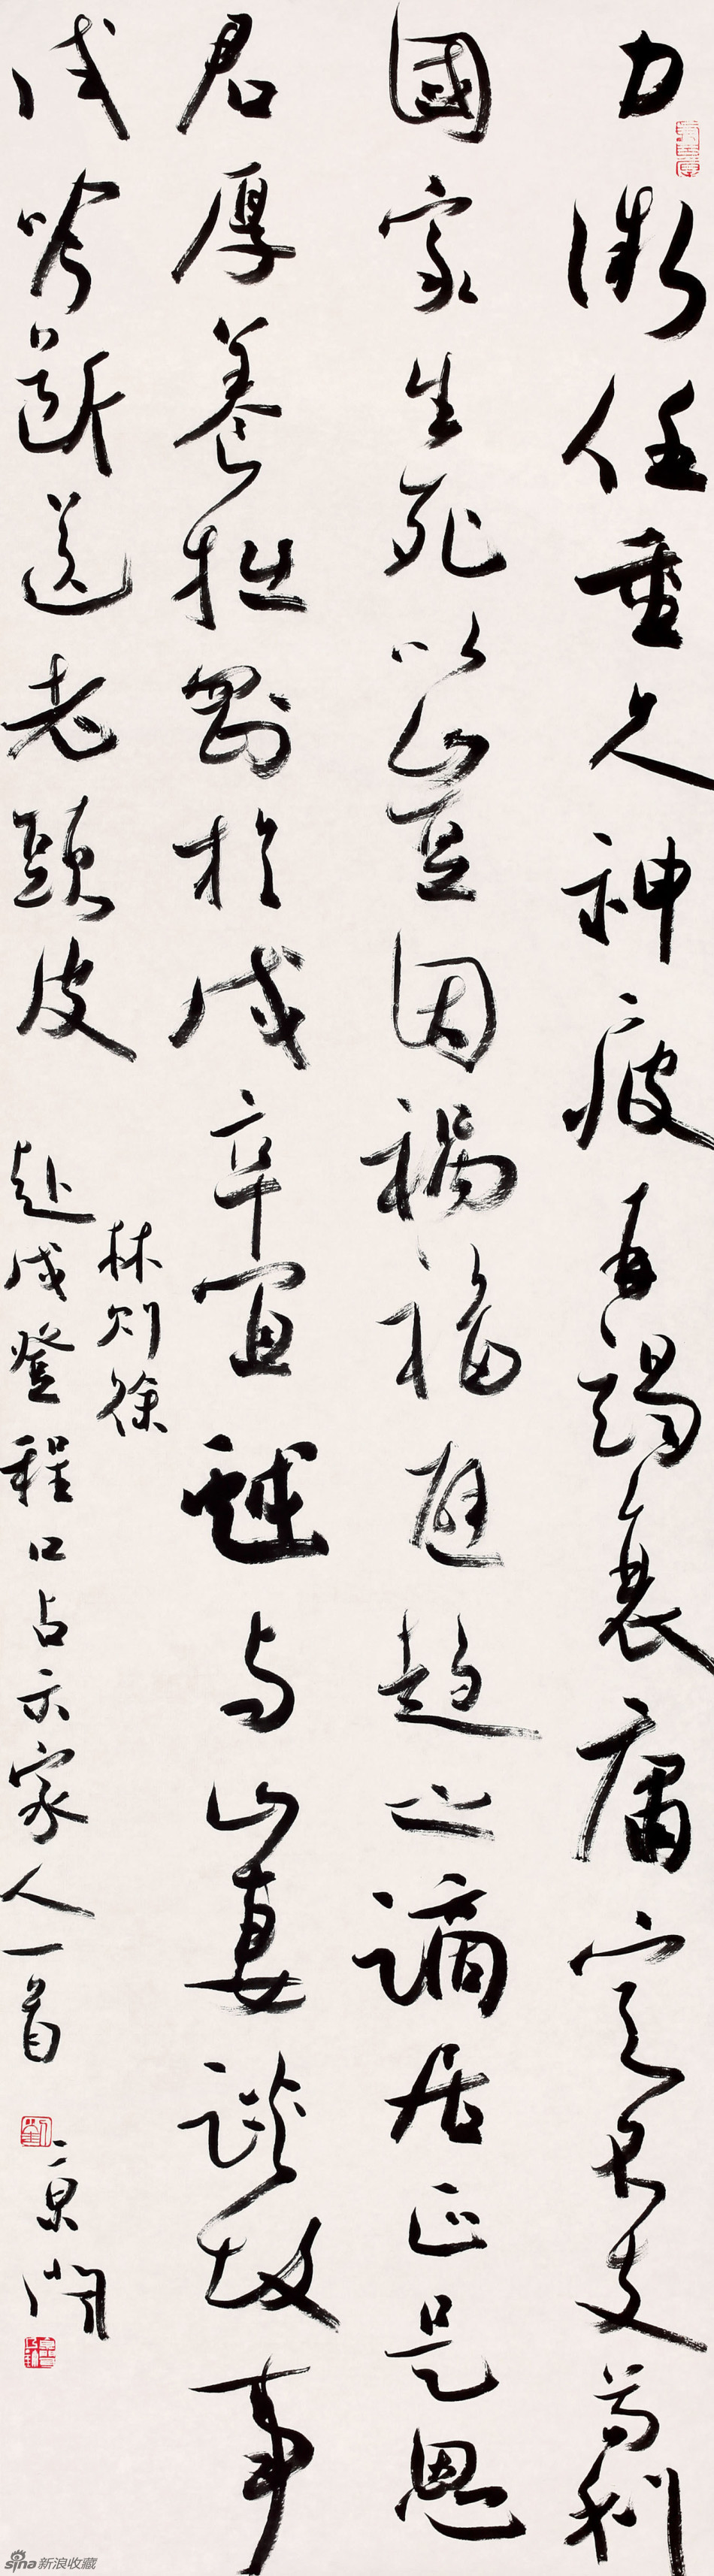 力微任重久神疲再竭衰庸定不支苟利
國家生死以豈因禍福避趨之謫居正是恩
君厚養拙剛於戍卒宜戲与山妻談故事
试吟斷送老頭皮
林则徐
赴戍登程口占示家人一首
京闻
sina新浪收藏